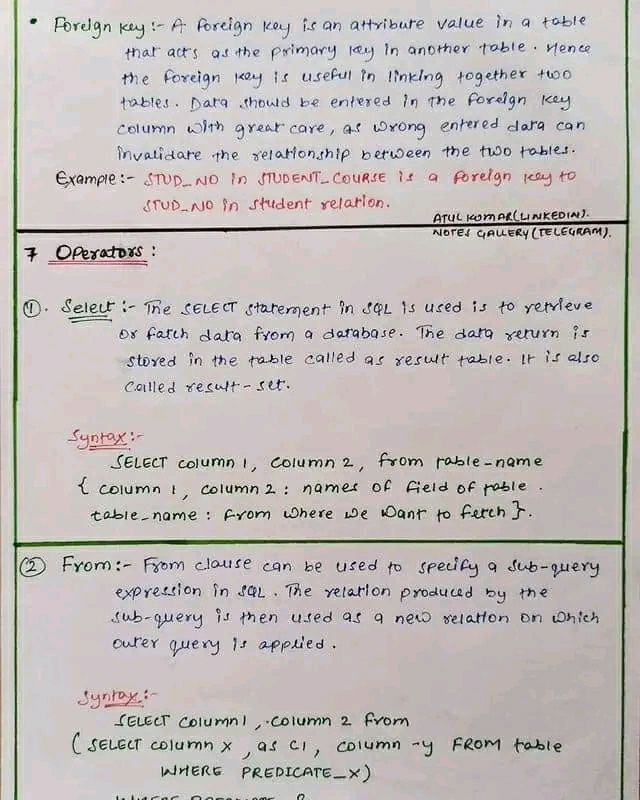 • Foreign key :- A foreign key is an attribute value in a table
that acts as the primary key in another table. Hence
the foreign key is useful in linking together two
tables. Data should be entered in the foreign key
column with great care, as wrong entered data can
invalidate the relationship between the two tables.
Example :- STUD_NO in STUDENT_COURSE is a foreign key to
STUD_NO in student relation.
ATUL KUMAR (LINKEDIN).
NOTES GALLERY (TELEGRAM).
7 Operators :
①. Select :- The SELECT statement in SQL is used is to retrieve
or fatch data from a database. The data return is
stored in the table called as result table. It is also
called result-set.
Syntax :-
SELECT column 1, column 2, from table-name
{ column 1, column 2 : names of field of table.
table_name : from where we want to fetch }.
② From :- From clause can be used to specify a sub-query
expression in SQL. The relation produced by the
sub-query is then used as a new relation on which
outer query is applied.
Syntax :-
SELECT column1, column 2 from
( SELECT column x, as C1, column -y FROM table
WHERE PREDICATE_X)